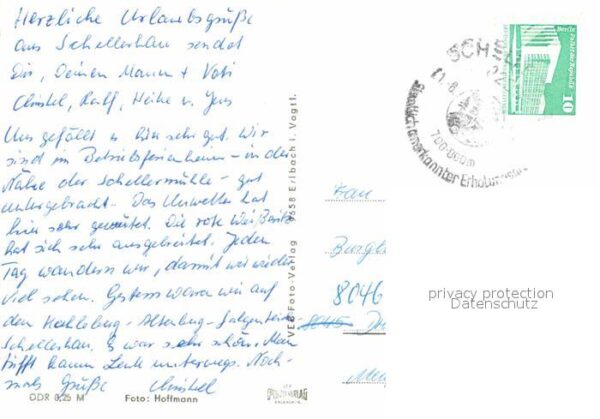 Herzliche Urlaubsgrüße
aus Schellerhau sendet
Dir, Deinem Mann + Vati
Christel, Ralf, Heike u. Jens
Uns gefällt es hier sehr gut. Wir
sind im Betriebsferienheim - in der
Nähe der Schellermühle - gut
untergebracht. Das Unwetter hat
hier sehr gewütet. Die rote Weißeritz
hat sich sehr ausgebreitet. Jeden
Tag wandern wir, damit wir wieder
viel sehen. Gestern waren wir auf
den Kahleberg - Altenberg -
Schellerhau. Es war sehr schön. Man
trifft kaum Leute unterwegs. Noch-
mals Grüße Christel
DDR 0,25 M Foto: Hoffmann
VEB Foto-Verlag 9658 Erlbach i. Vogtl.
Frau
8046
privacy protection
Datenschutz
SCH
700-800m
Staatlich anerkannter Erholungsort
10